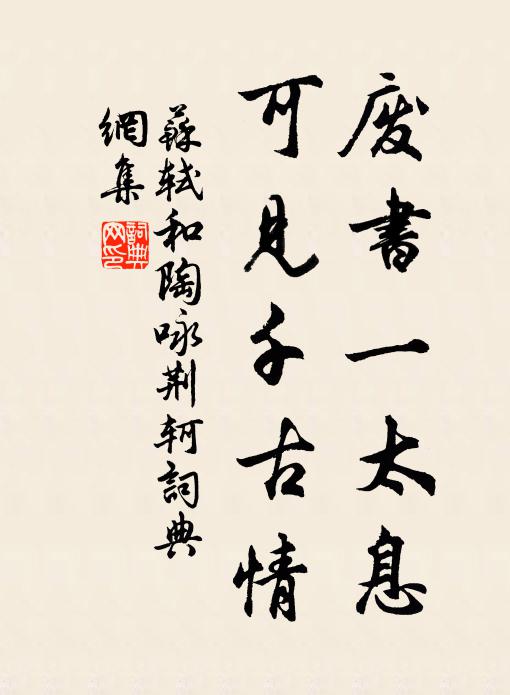 废书一太息
可见千古情
蘇轼和陶咏荆轲詞典
網集
詞典网印